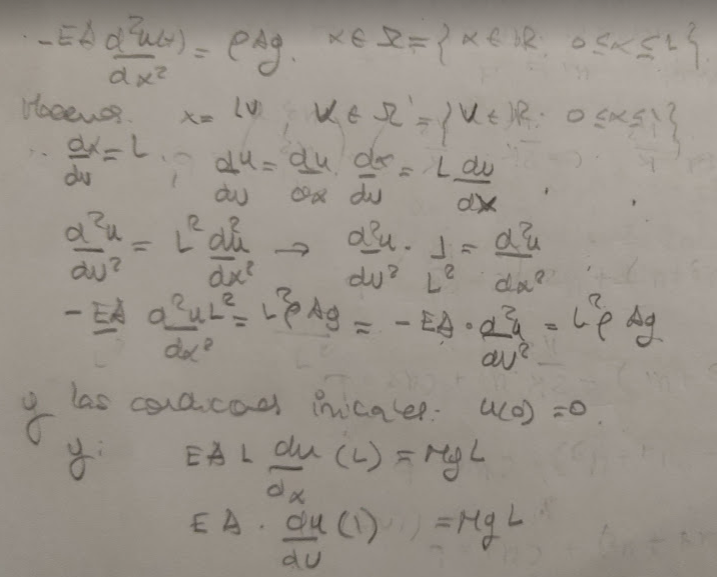 -EA d²u(x)/dx² = ρAg. x ∈ Ω = {x ∈ ℝ: 0 ≤ x ≤ L}
Hacemos. x = Lv, v ∈ Ω' = {v ∈ ℝ: 0 ≤ x ≤ 1}
∴ dx/dv = L. ; du/dv = du/dx dx/dv = L du/dx .
d²u/dv² = L² d²u/dx² → d²u/dv² · 1/L² = d²u/dx²
-EA d²u/dx² L² = L²ρAg = -EA · d²u/dv² = L²ρAg
y las condiciones iniciales: u(0) = 0.
y: EAL du/dx (L) = MgL
EA · du/dv (1) = MgL